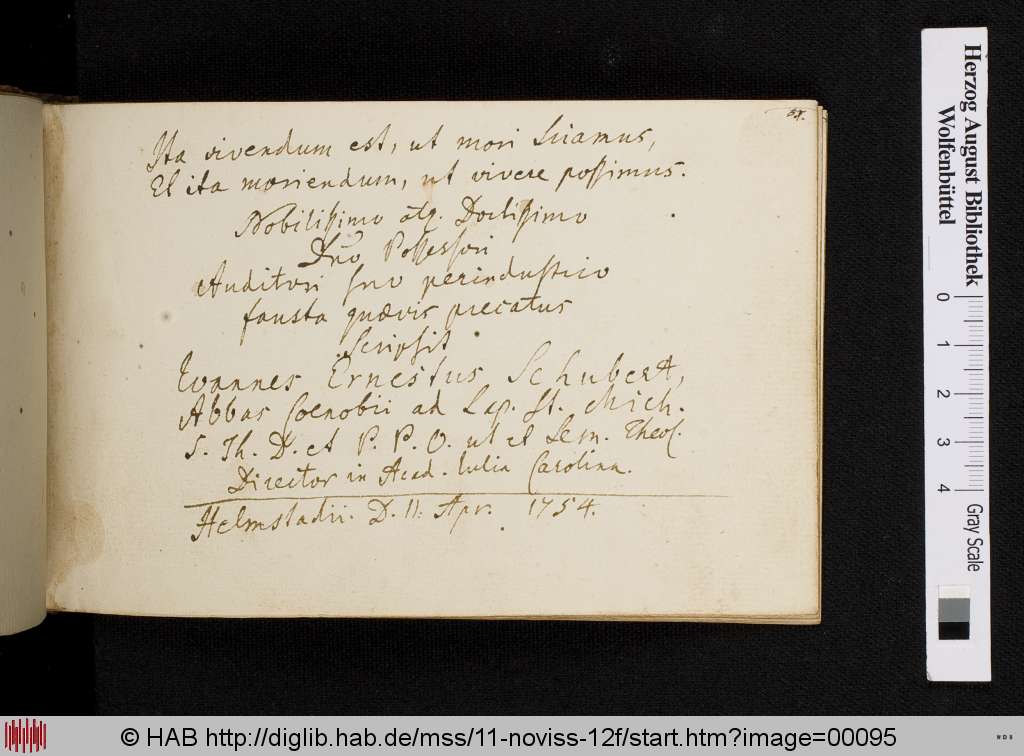 Ita vivendum est, ut mori sciamus,
Et ita moriendum, ut vivere possimus.
Nobilissimo atq. Doctissimo
Dno Possessori
Auditori suo perindustrio
fausta quaevis precatus
scripsit
Ioannes Ernestus Schubert,
Abbas Coenobii ad Lap. St. Mich.
S. Th. D. et P. P. O. ut et Sem. Theol.
Director in Acad. Iulia Carolina.
Helmstadii. D. 11. Apr. 1754.
Herzog August Bibliothek
Wolfenbüttel
0 1 2 3 4 Gray Scale
© HAB http://diglib.hab.de/mss/11-noviss-12f/start.htm?image=00095